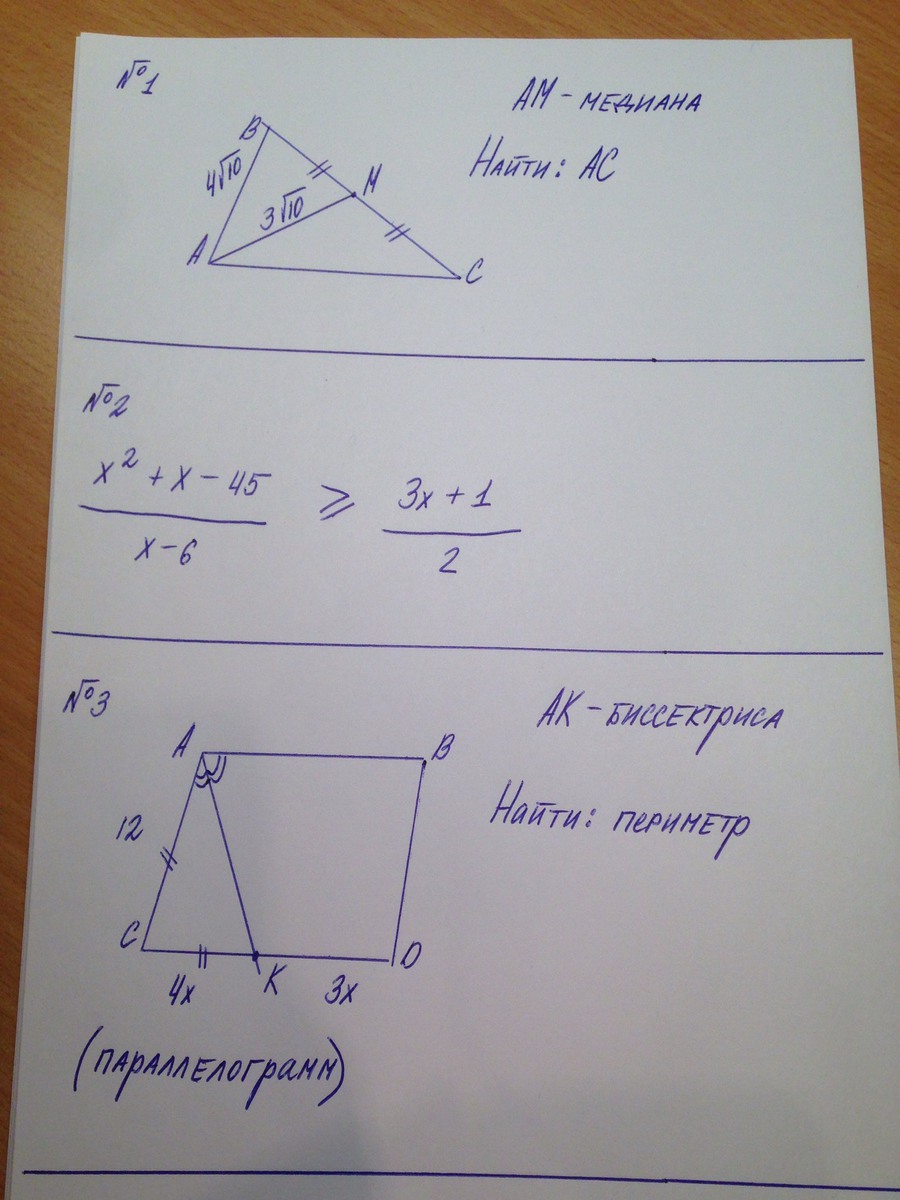 №1
АМ – МЕДИАНА
НАЙТИ: АС
B
4√10
M
3√10
A
C
№2
x² + x – 45
x – 6
⩾
3x + 1
2
№3
АК – БИССЕКТРИСА
НАЙТИ: ПЕРИМЕТР
A
B
12
C
K
D
4x
3x
(ПАРАЛЛЕЛОГРАММ)